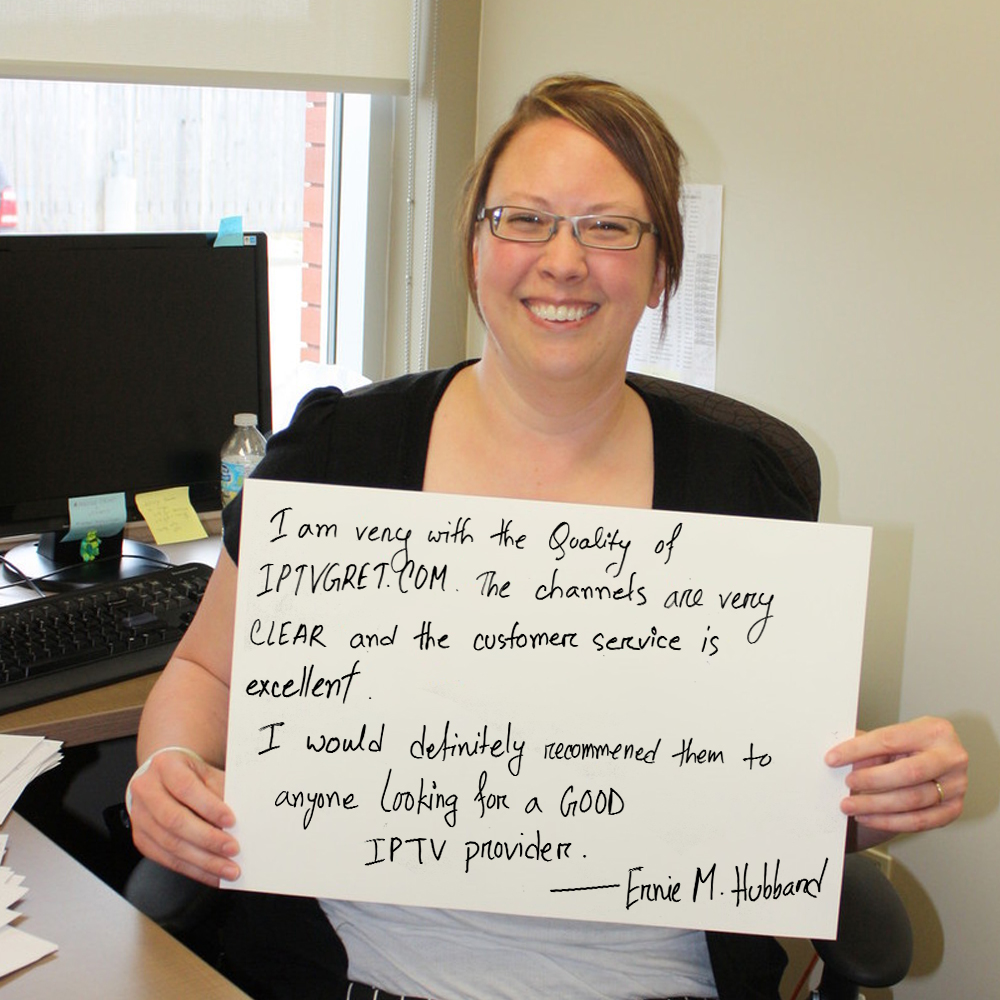 I am very with the Quality of
IPTVGRET.COM. The channels are very
CLEAR and the customer service is
excellent.
I would definitely recommened them to
anyone looking for a GOOD
IPTV provider.
— Ernie M. Hubband